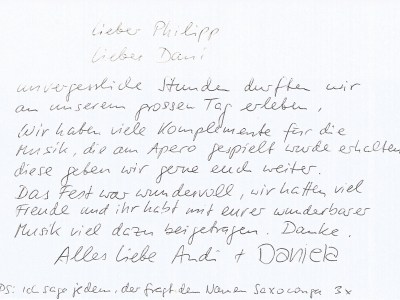 Lieber Philipp
Lieber Dani
unvergessliche Stunden durften wir
an unserem grossen Tag erleben.
Wir haben viele Komplimente für die
Musik, die am Apero gespielt wurde erhalten
diese geben wir gerne euch weiter.
Das Fest war wundervoll, wir hatten viel
Freude und ihr habt mit eurer wunderbarer
Musik viel dazu beigetragen. Danke.
Alles Liebe Andi + Daniela
PS: ich sage jedem, der fragt den Namen Saxoconga 3x